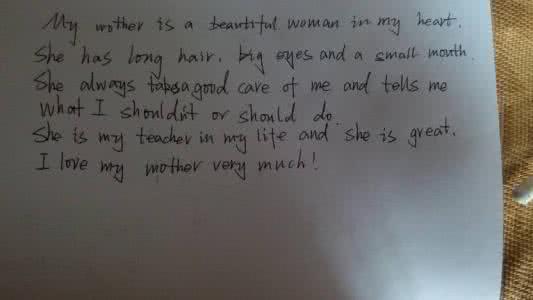 My mother is a beautiful woman in my heart.
She has long hair. big eyes and a small mouth.
She always takes a good care of me and tells me
what I shouldn't or should do.
She is my teacher in my life and she is great.
I love my mother very much!